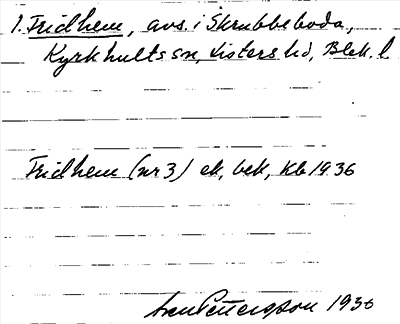 1. Fridhem, avs. i Skrubbeboda,
Kyrkhults sn, Listers hd, Blek. l
Fridhem (nr 3) ek, bek, Kb 1936
Pettersson 1936